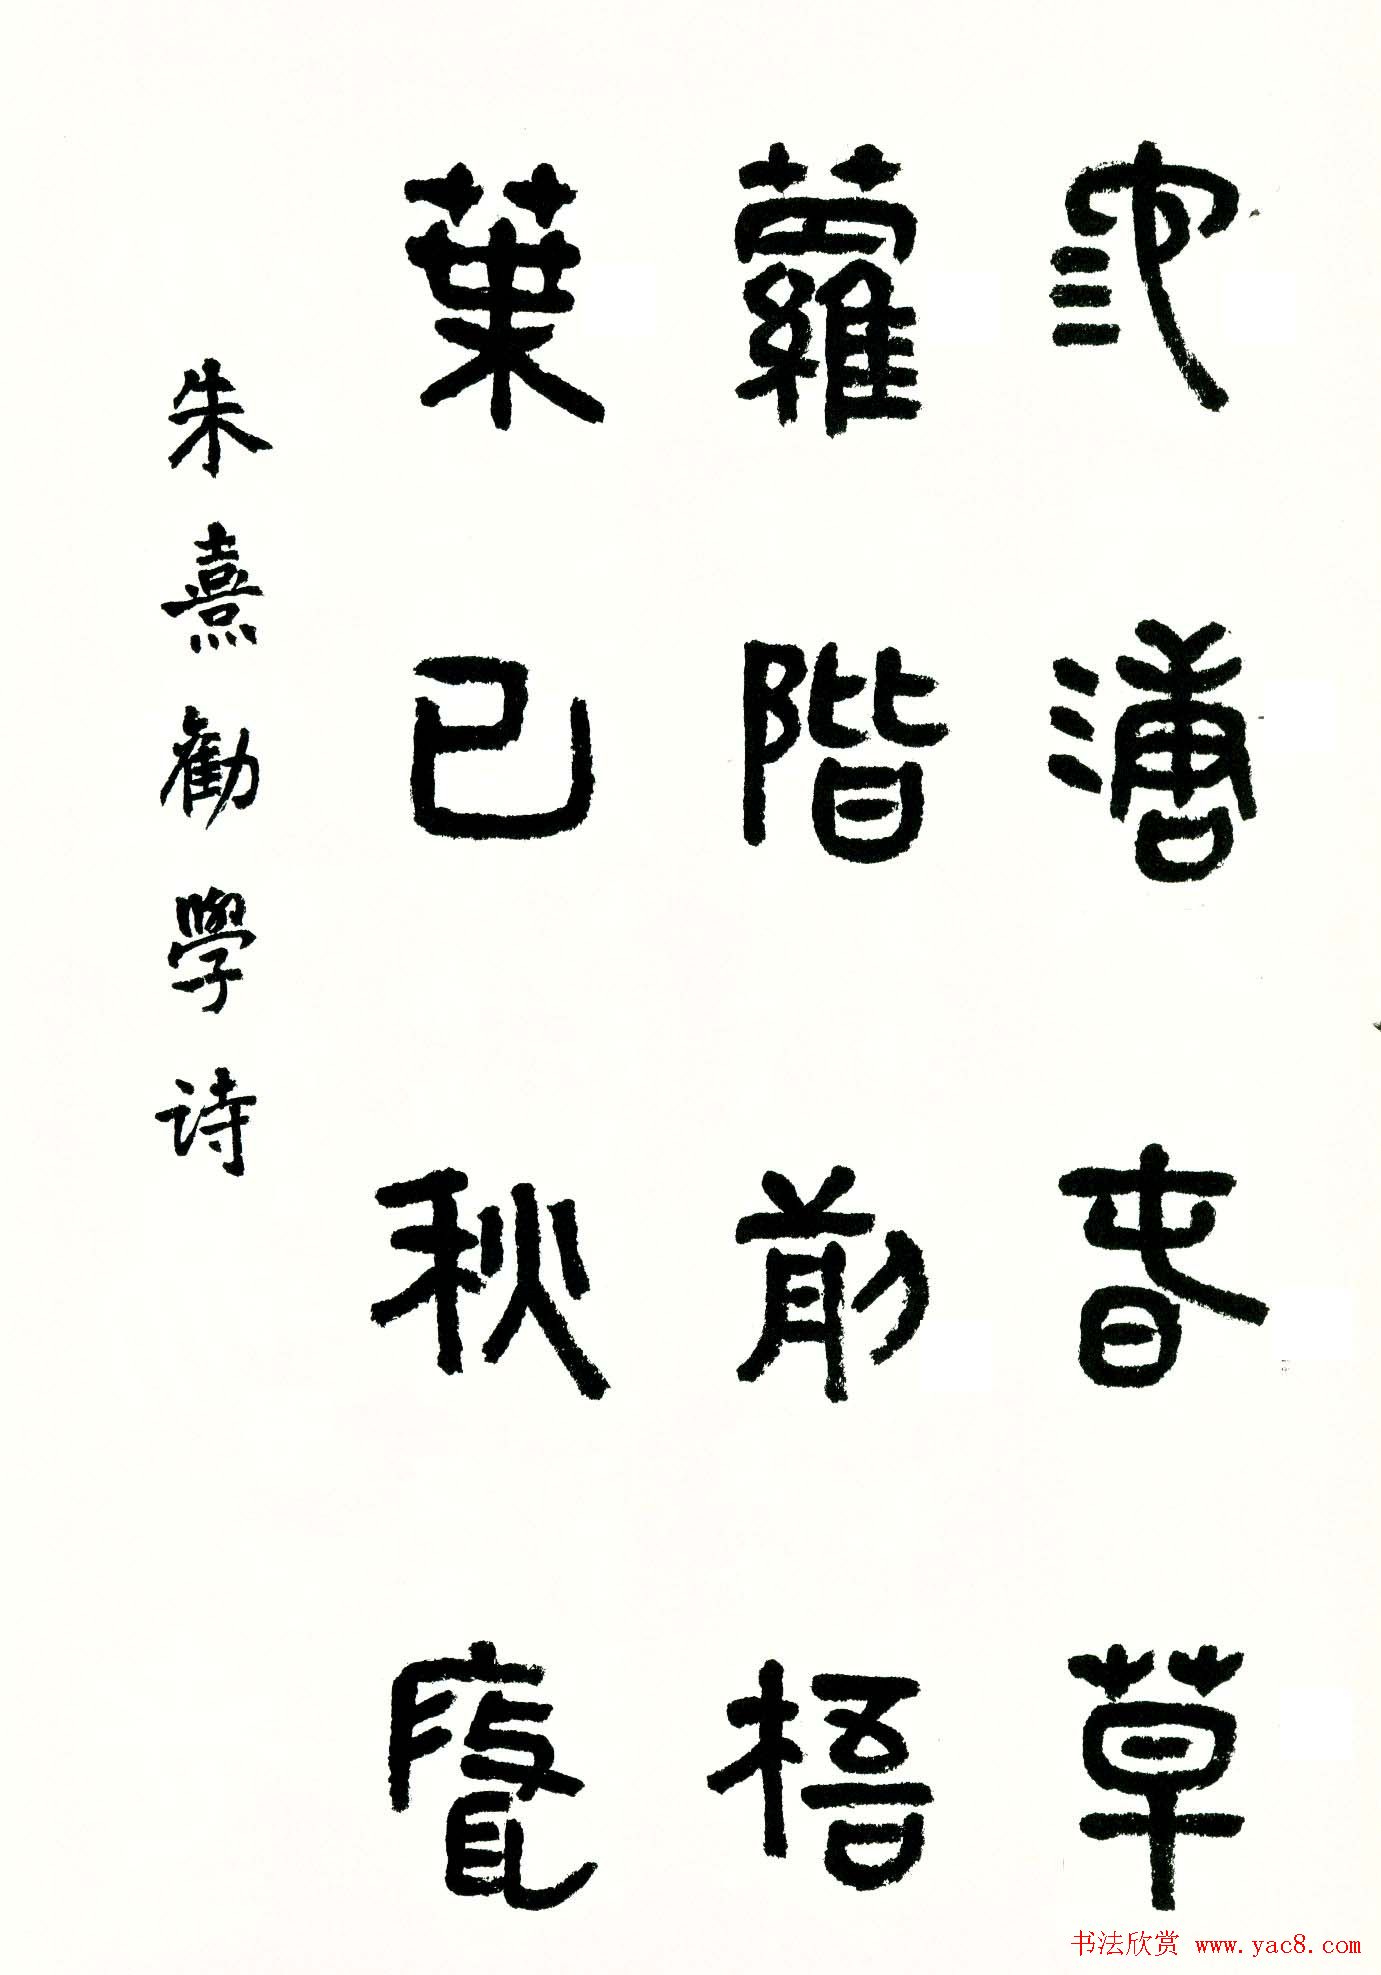 池溏春草
蘿階前梧
葉已秋聲
朱熹勸學诗
书法欣赏 www.yac8.com